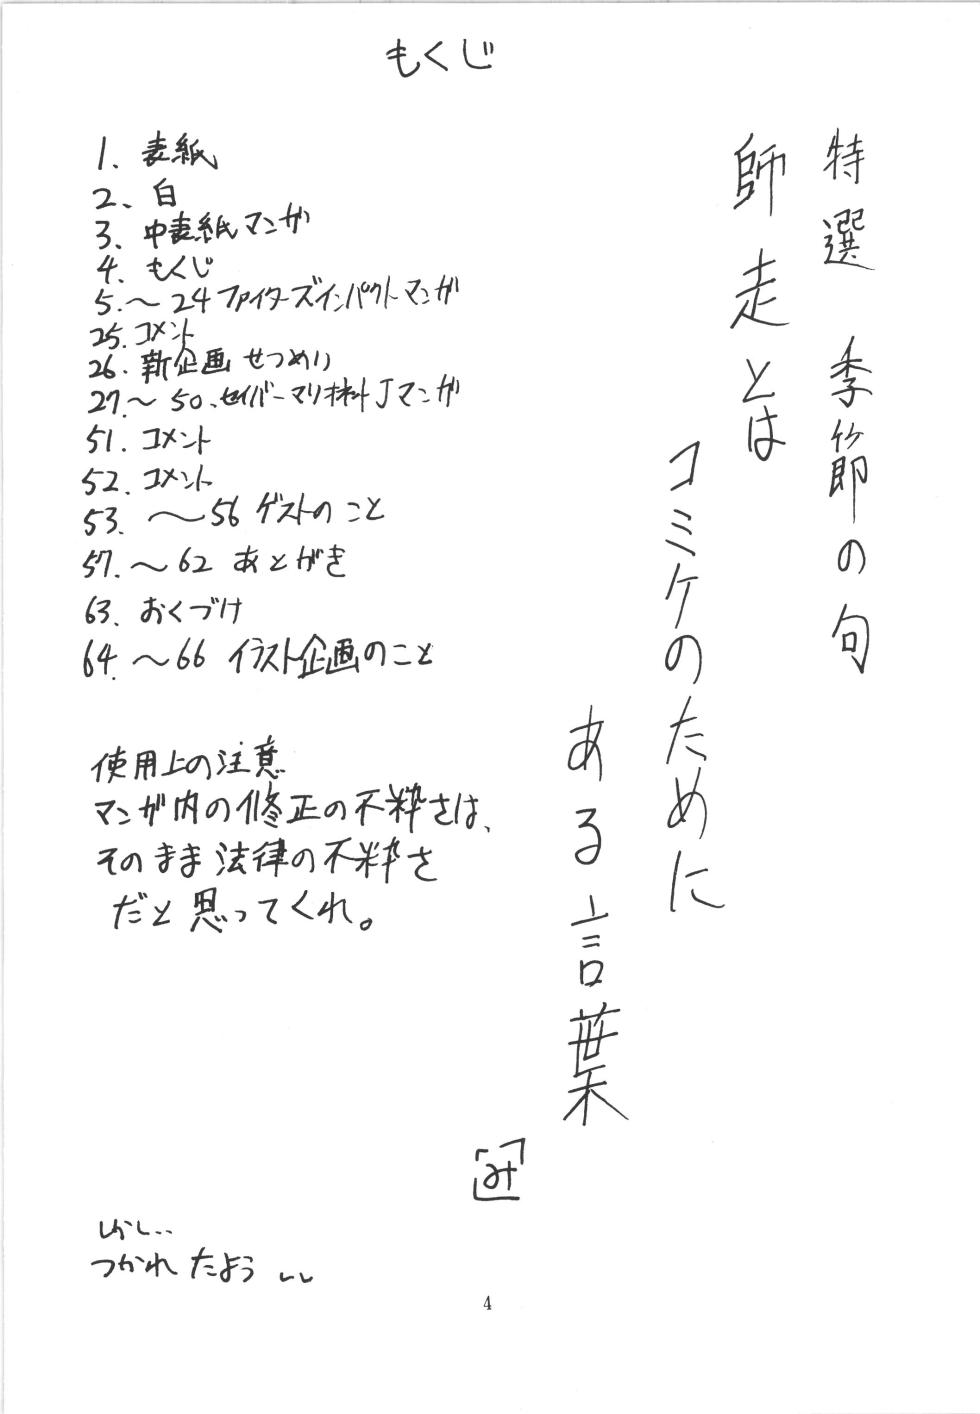 もくじ
特選 季節の句
師走とは
コミケのために
ある言葉
み
1. 表紙
2. 白
3. 中表紙マンガ
4. もくじ
5.〜24ファイターズインパクトマンガ
25.コメント
26.新企画せつめい
27.〜50.セイバーマリオネットJマンガ
51.コメント
52.コメント
53.〜56ゲストのこと
57.〜62あとがき
63.おくづけ
64.〜66イラスト企画のこと
使用上の注意
マンガ内の修正の不粋さは、
そのまま法律の不粋さ
だと思ってくれ。
しかし...
つかれたよう
4